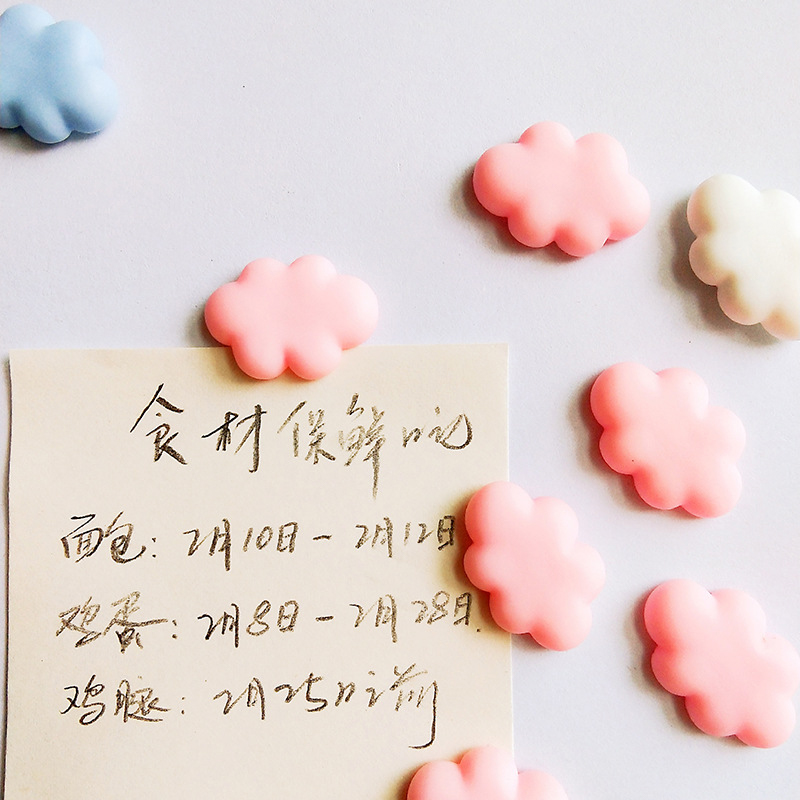 食材保鲜吃
面包：2月10日-2月12日
鸡蛋：2月8日-2月28日.
鸡腿：2月25日之前